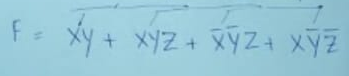 F = xy + xyz + x̄ȳz + xȳz̄